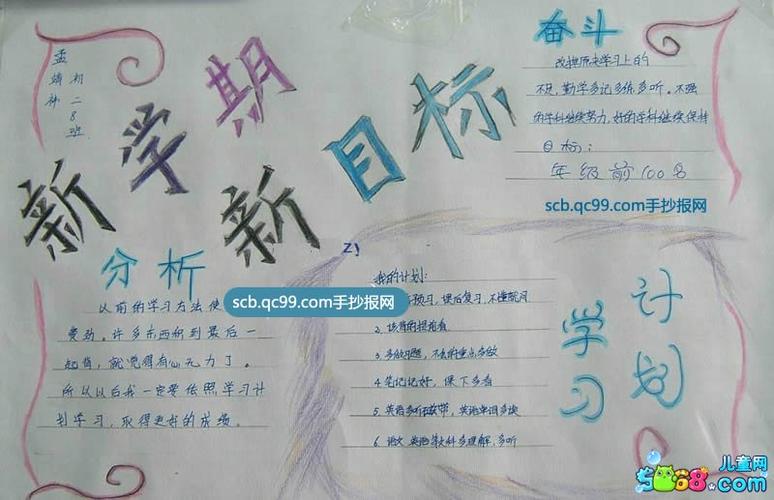 孟婧
初二8班
新学期
新目标
奋斗
改掉原来学习上的
不足,勤学多记多练多听。不强
的学科继续努力,好的学科继续保持
目标:
年级前100名
scb.qc99.com手抄报网
分析
以前的学习方法使
费劲。许多东西积到最后一
起背,就觉得有心无力了。
所以以后我一定要依照学习计
划学习,取得更好的成绩。
scb.qc99.com手抄报网
我的计划:
预习,课后复习,不懂就问
2、该背的提前看
3、多做习题,不会的重点多做
4、笔记记好,课下多看
5、英语多听磁带,英语单词多读
6、语文英语等文科多理解,多听
学习
计划
儿童网
5068.com